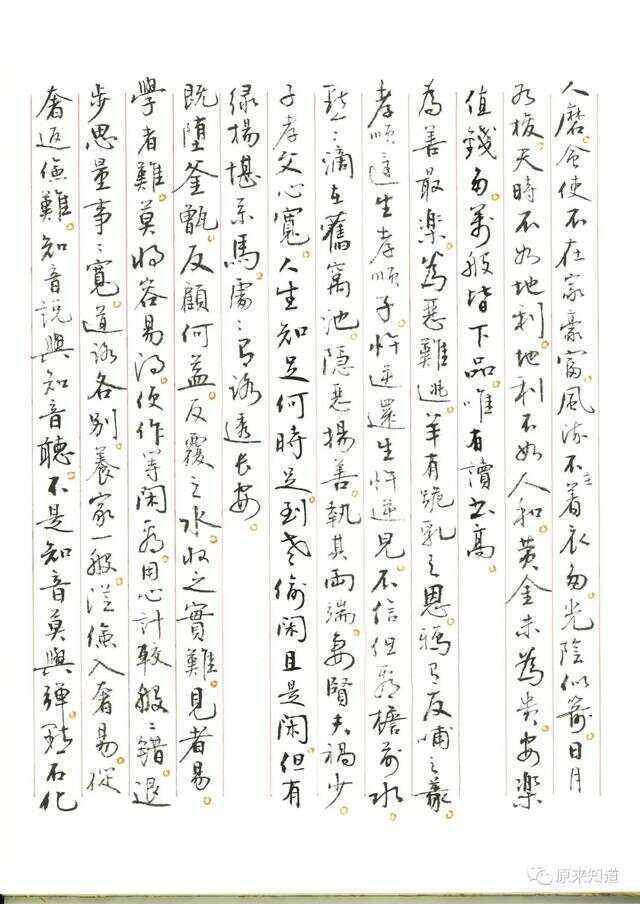 人磨。會使不在家豪富。風流不在着衣多。光陰似箭。日月
如梭。天時不如地利。地利不如人和。黃金未為貴。安樂
值錢多。萬般皆下品。唯有讀書高。
為善最樂。為惡難逃。羊有跪乳之恩。鴉有反哺之義。
孝順還生孝順子。忤逆還生忤逆兒。不信但看檐前水。
點〻滴在舊窩池。隱惡揚善。執其兩端。妻賢夫禍少。
子孝父心寬。人生知足何時足。到老偷閑且是閑。但有
綠楊堪系馬。處〻有路透長安。
既墮釜甑。反顧何益。反覆之水。收之實難。見者易。
學者難。莫將容易得。便作等閑看。用心計較般〻錯。退
步思量事〻寬。道路各別。養家一般。從儉入奢易。從
奢返儉難。知音說與知音聽。不是知音莫與彈。點石化
原来知道